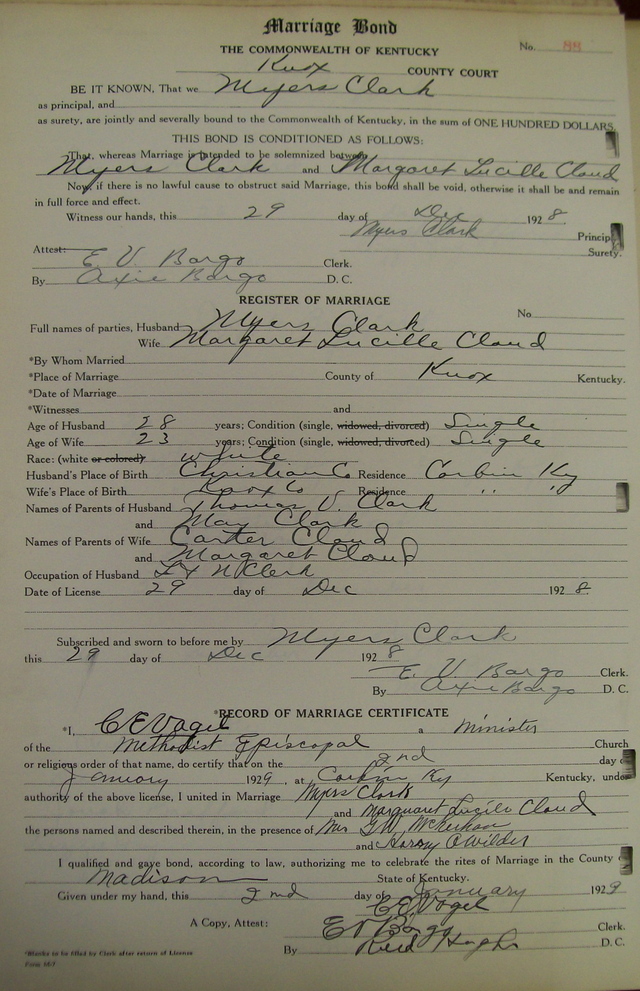 Marriage Bond
THE COMMONWEALTH OF KENTUCKY No. 88
Knox COUNTY COURT
BE IT KNOWN, That we Myers Clark
as principal, and
as surety, are jointly and severally bound to the Commonwealth of Kentucky, in the sum of ONE HUNDRED DOLLARS.
THIS BOND IS CONDITIONED AS FOLLOWS:
That, whereas Marriage is intended to be solemnized between
Myers Clark and Margaret Lucille Cloud
Now, if there is no lawful cause to obstruct said Marriage, this bond shall be void, otherwise it shall be and remain
in full force and effect.
Witness our hands, this 29 day of Dec 1928.
Myers Clark Princip
Surety.
Attest: E. V. Bargo Clerk.
By Axie Bargo D. C.
REGISTER OF MARRIAGE
No.
Full names of parties, Husband Myers Clark
Wife Margaret Lucille Cloud
*By Whom Married
*Place of Marriage County of Knox Kentucky.
*Date of Marriage
*Witnesses and
Age of Husband 28 years; Condition (single, widowed, divorced) Single
Age of Wife 23 years; Condition (single, widowed, divorced) Single
Race: (white or colored) white
Husband's Place of Birth Christian Co Residence Corbin Ky
Wife's Place of Birth Knox Co Residence " "
Names of Parents of Husband Thomas V. Clark
and May Clark
Names of Parents of Wife Carter Cloud
and Margaret Cloud
Occupation of Husband L & N Clerk
Date of License 29 day of Dec 1928.
Subscribed and sworn to before me by Myers Clark
this 29 day of Dec 1928
E. V. Bargo Clerk.
By Axie Bargo D. C.
*RECORD OF MARRIAGE CERTIFICATE
*I, C E Vogel a Minister
of the Methodist Episcopal Church
or religious order of that name, do certify that on the 2nd day o
January 1929, at Corbin Ky Kentucky, unde
authority of the above license, I united in Marriage Myers Clark
and Marguaret Lucile Cloud
the persons named and described therein, in the presence of Mrs G.W.
and Wilder
I qualified and gave bond, according to law, authorizing me to celebrate the rites of Marriage in the County o
Madison State of Kentucky.
Given under my hand, this 2nd day of January 1929
C E Vogel
A Copy, Attest: E V Bargo Clerk.
By Reed Hughs D. C.
*Blanks to be filled by Clerk after return of License